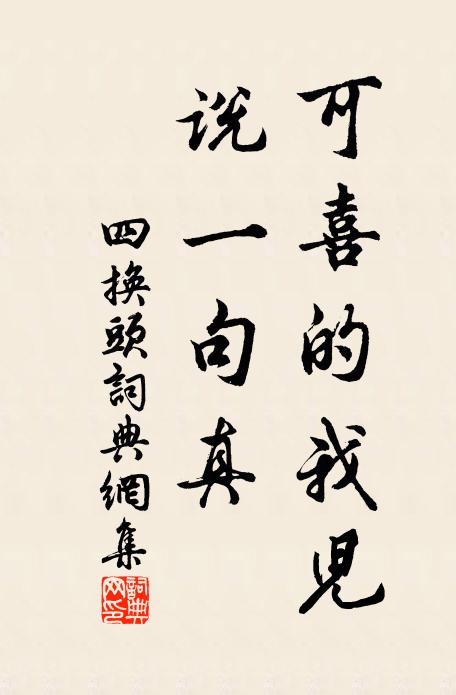 可喜的我児
説一句真
四換頭詞典網集
詞典网印